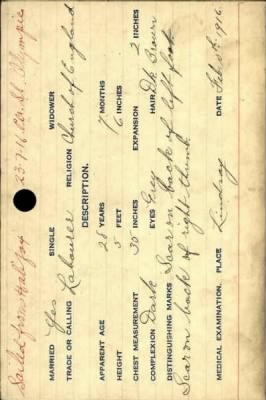 Sailed from Halifax 23-7-16 per S.S. Olympic
MARRIED Yes SINGLE WIDOWER
TRADE OR CALLING Labourer RELIGION Church of England
DESCRIPTION.
APPARENT AGE 28 YEARS 7 MONTHS
HEIGHT 5 FEET 6 INCHES
CHEST MEASUREMENT 30 INCHES EXPANSION 2 INCHES
COMPLEXION Dark EYES Grey HAIR Dk Brown
DISTINGUISHING MARKS Scar on back of left foot
Scar on back of right thumb
MEDICAL EXAMINATION. PLACE Lindsay DATE 1916